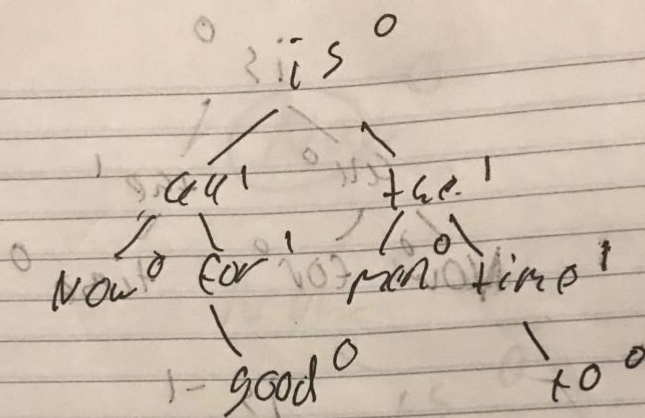 is 0
all 1 the 1
Now 0 for 1 men 0 time 1
good 0 to 0